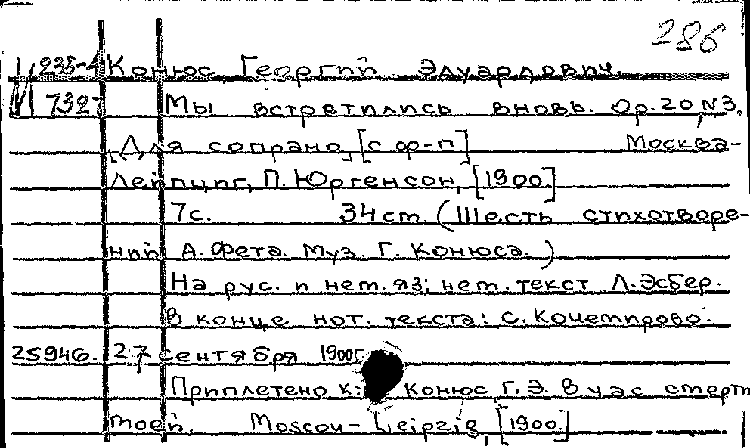 286
Конюс, Георгий Эдуардович.
7327 Мы встретились вновь. Op. 20, N3.
[Для сопрано, [с ф-п] Москва-
Лейпциг, П. Юргенсон, [1900.]
7с. 34 cm. (Шесть стихотворе-
ний А. Фета. Муз. Г. Конюса.)
На рус. и нем. яз; нем. текст Л. Эсбер.
В конце нот. текста: с. Кочемирово.
25946. 27 сентября 1900г.
Приплетено к: Конюс Г. Э. В час смерти
моей. Moscou-Leipzig, [1900]